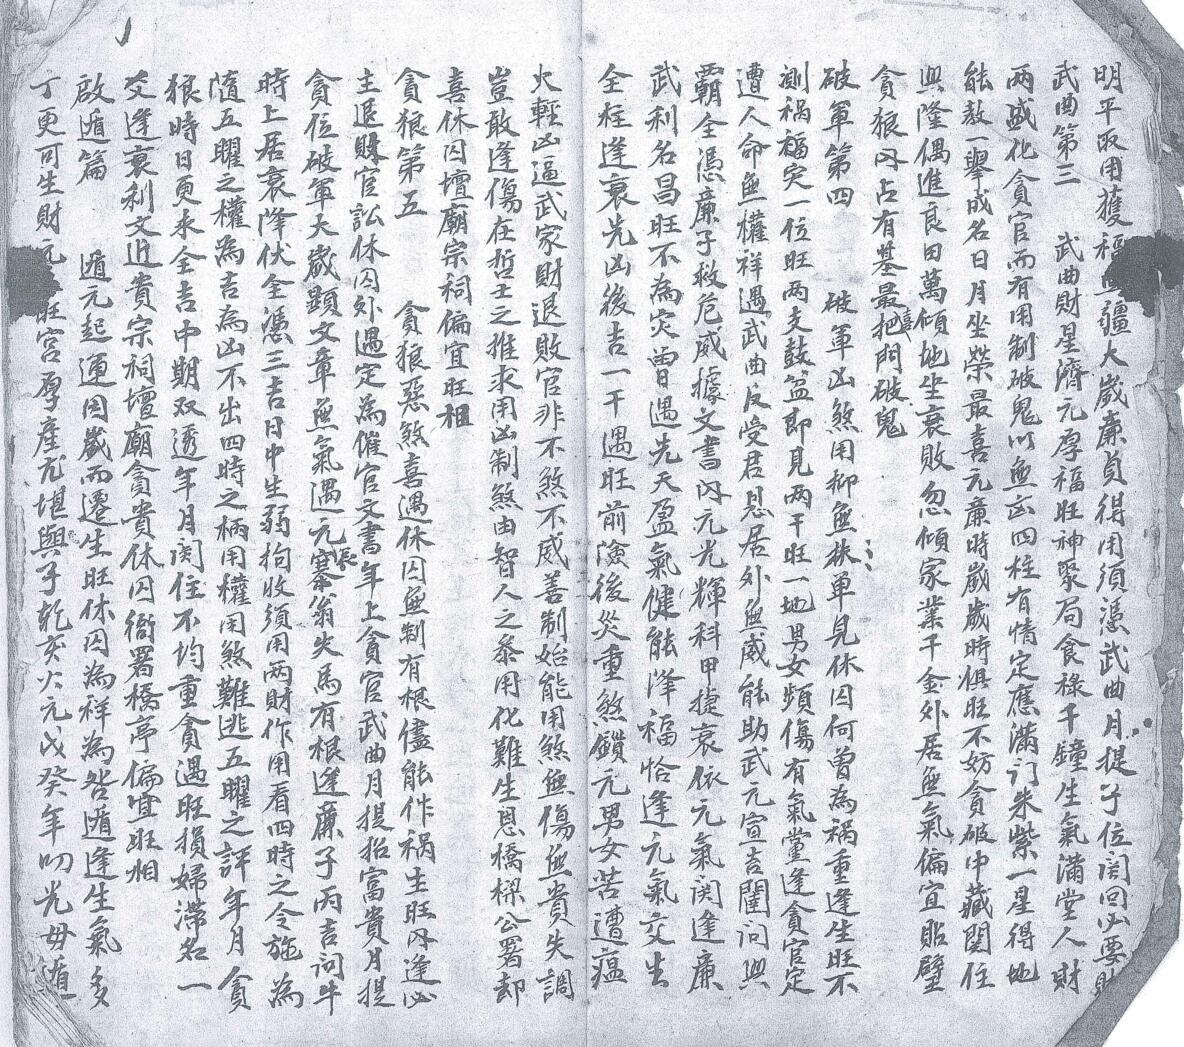 明平取用獲福無疆大歲廉貞得用須憑武曲月提子位関回必要財
武曲第三　武曲財星濟元厚福旺神聚局食祿千鐘生氣滿堂人財
两盛化貪官而有用制破鬼以無凶四柱有情定應滿门朱紫一星得地
能敖一舉成名日月坐榮最喜元廉時歲歲時俱旺不妨貪破中藏関住
興隆偶進良田萬傾地坐衰敗忽傾家業千金外居無氣偏宜貼壁
貪狼内占有基最喜把門破鬼
破軍第四　破軍凶煞用抑無扶單見休囚何曾為禍重逢生旺不
測禍福突一位旺两支鼓盆即見两干旺一地男女頻傷有氣黨逢貪官定
遭人命無權祥遇武曲反受君恩居外無威能助武元宣吉闔词興
霸全憑廉子救危威據文書内元光輝科甲捷衰依元氣関逢廉
武利名昌旺不為灾曾日遇先天盈氣健能降福恰逢元氣交生
全柱逢衰先凶後吉一干遇旺前險後災重煞鎖元男女苦遭瘟
火輕凶逼武家財退敗官非不煞不威善制始能用煞無傷無貴失調
豈敢逢傷在哲士之推求用凶制煞由智人之叅用化難生恩橋樑公署却
喜休囚壇廟宗祠偏宜旺相
貪狼第五　貪狼惡煞喜遇休囚無制有根儘能作禍生旺内逢必
主退財官訟休囚外遇定為催官文書年上貪官武曲月提招富貴月提
貪位破軍大歲顕文章無氣遇元張寨翁失馬有根逢廉子丙吉词牛
時上居衰降伏全憑三吉日中生弱拘收須用两財作用看四時之令施為
隨五曜之權為吉為凶不出四時之柄用權用煞難逃五曜之評年月貪
狼時日更求全吉中期双透年月関住不均重貪遇旺損婦滞名一
爻逢衰利文近貴宗祠壇廟貪貴休囚衙署橋亭偏宜旺相
啟遁篇　遁元起運因歲而遷生旺休囚為祥為咎遁逢生氣多
丁更可生財元旺宮厚產尤堪與子乾亥火元戊癸年叨光毋遁